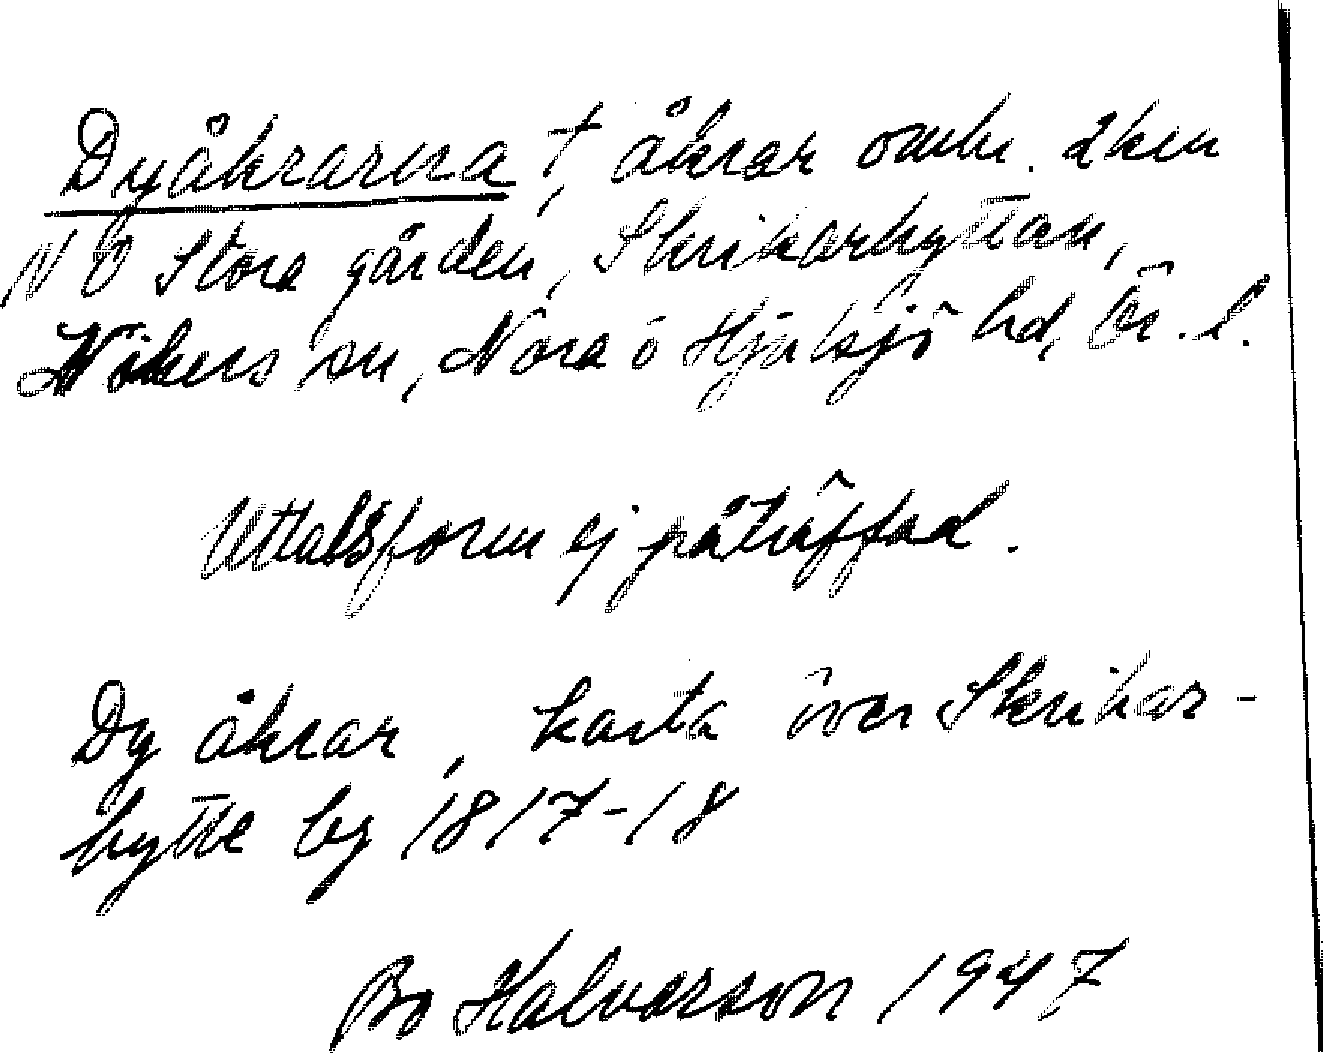 Dyåkrarna †, åkrar omkr. 2 km
N O Stora gården, Skrikarhyttan,
Vikers sn, Nora o Hjulsjö hd, Ör. l.
Uttalsform ej påträffad.
Dy åkrar, karta över Skrikar-
hytte by 1817-18
Bo Halvarson 1947